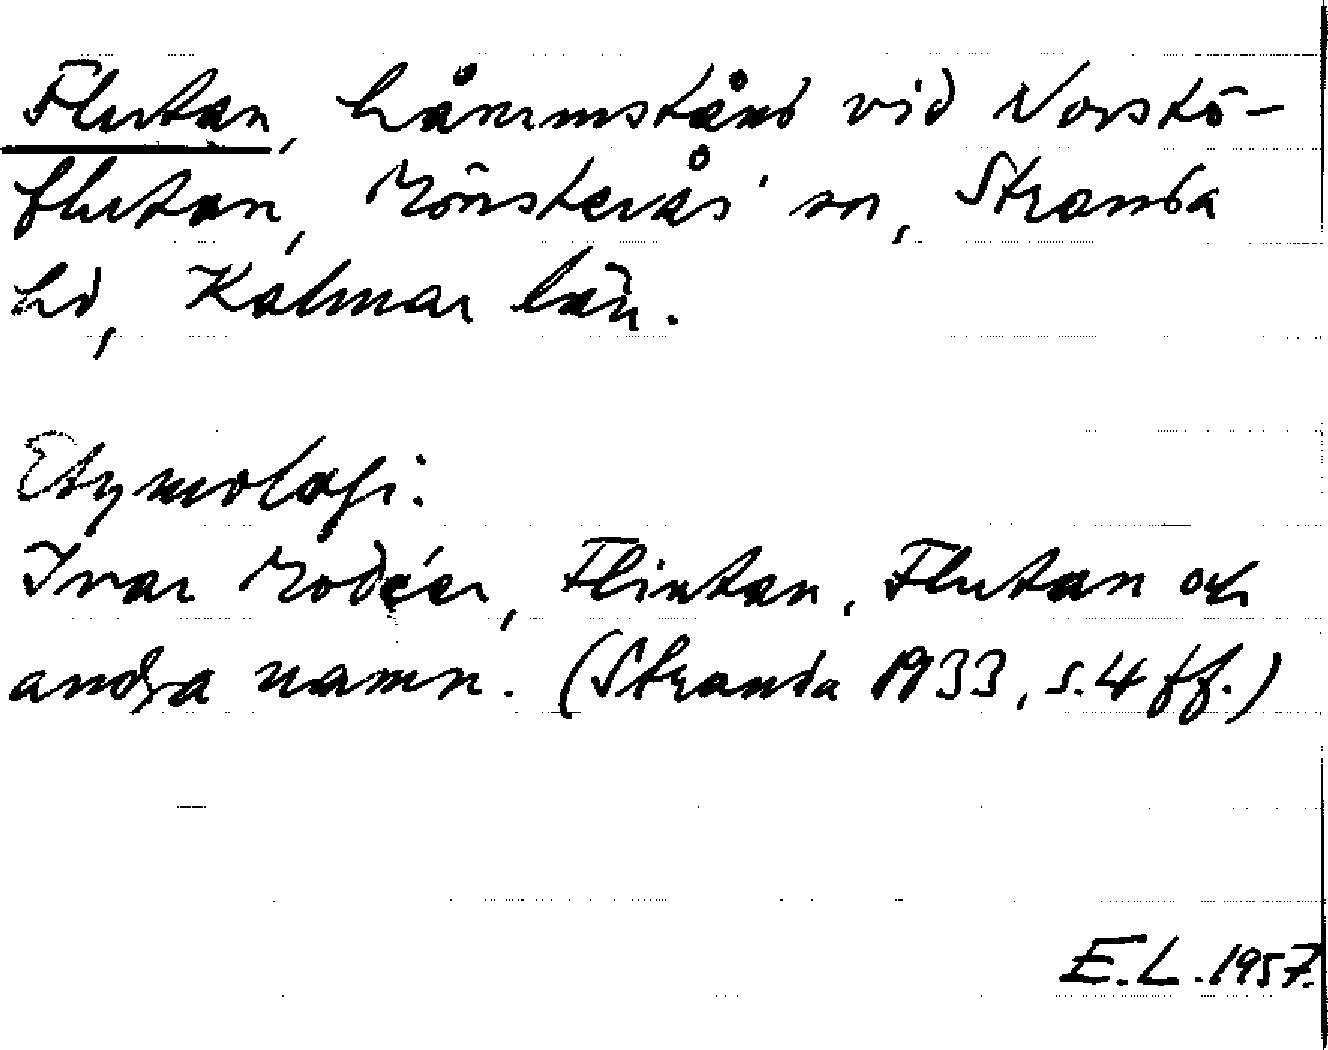 Flutan, vid Norstö-
flutan, Mönsterås' sn, Stranda
hd, Kalmar län.
Etymologi:
Ivar Modéer, Flintan, Flutan och
andra namn. (Stranda 1933, s. 4 ff.)
E.L. 1957.